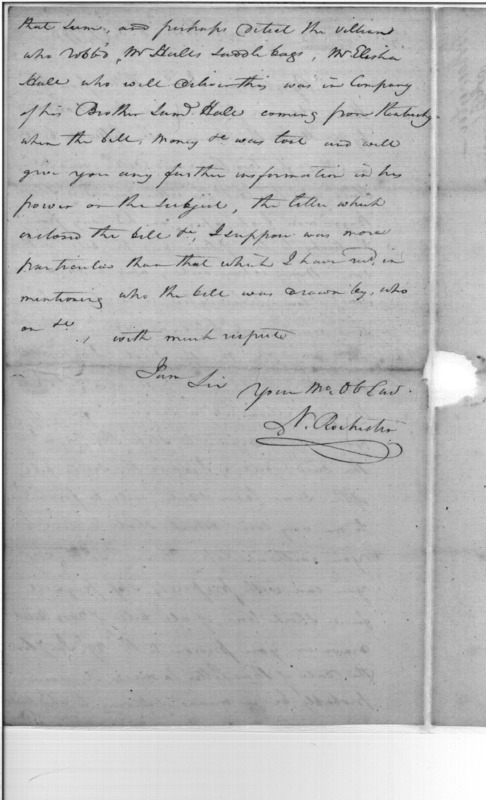 that sum, and perhaps detect the villian
who robb'd Mr Hales saddle bags, Mr Elisha
Hale who will deliver this was in Company
of his Brother Saml Hale coming from Kentucky
when the bill, money &c was lost and will
give you any further information in his
power on the subject, the letter which
enclosed the bill &c, I suppose was more
particular than that which I have recd, in
mentioning who the bill was drawn by, who
on &c, with much respect
I am Sir
Your Mo Ob
N. Rochester